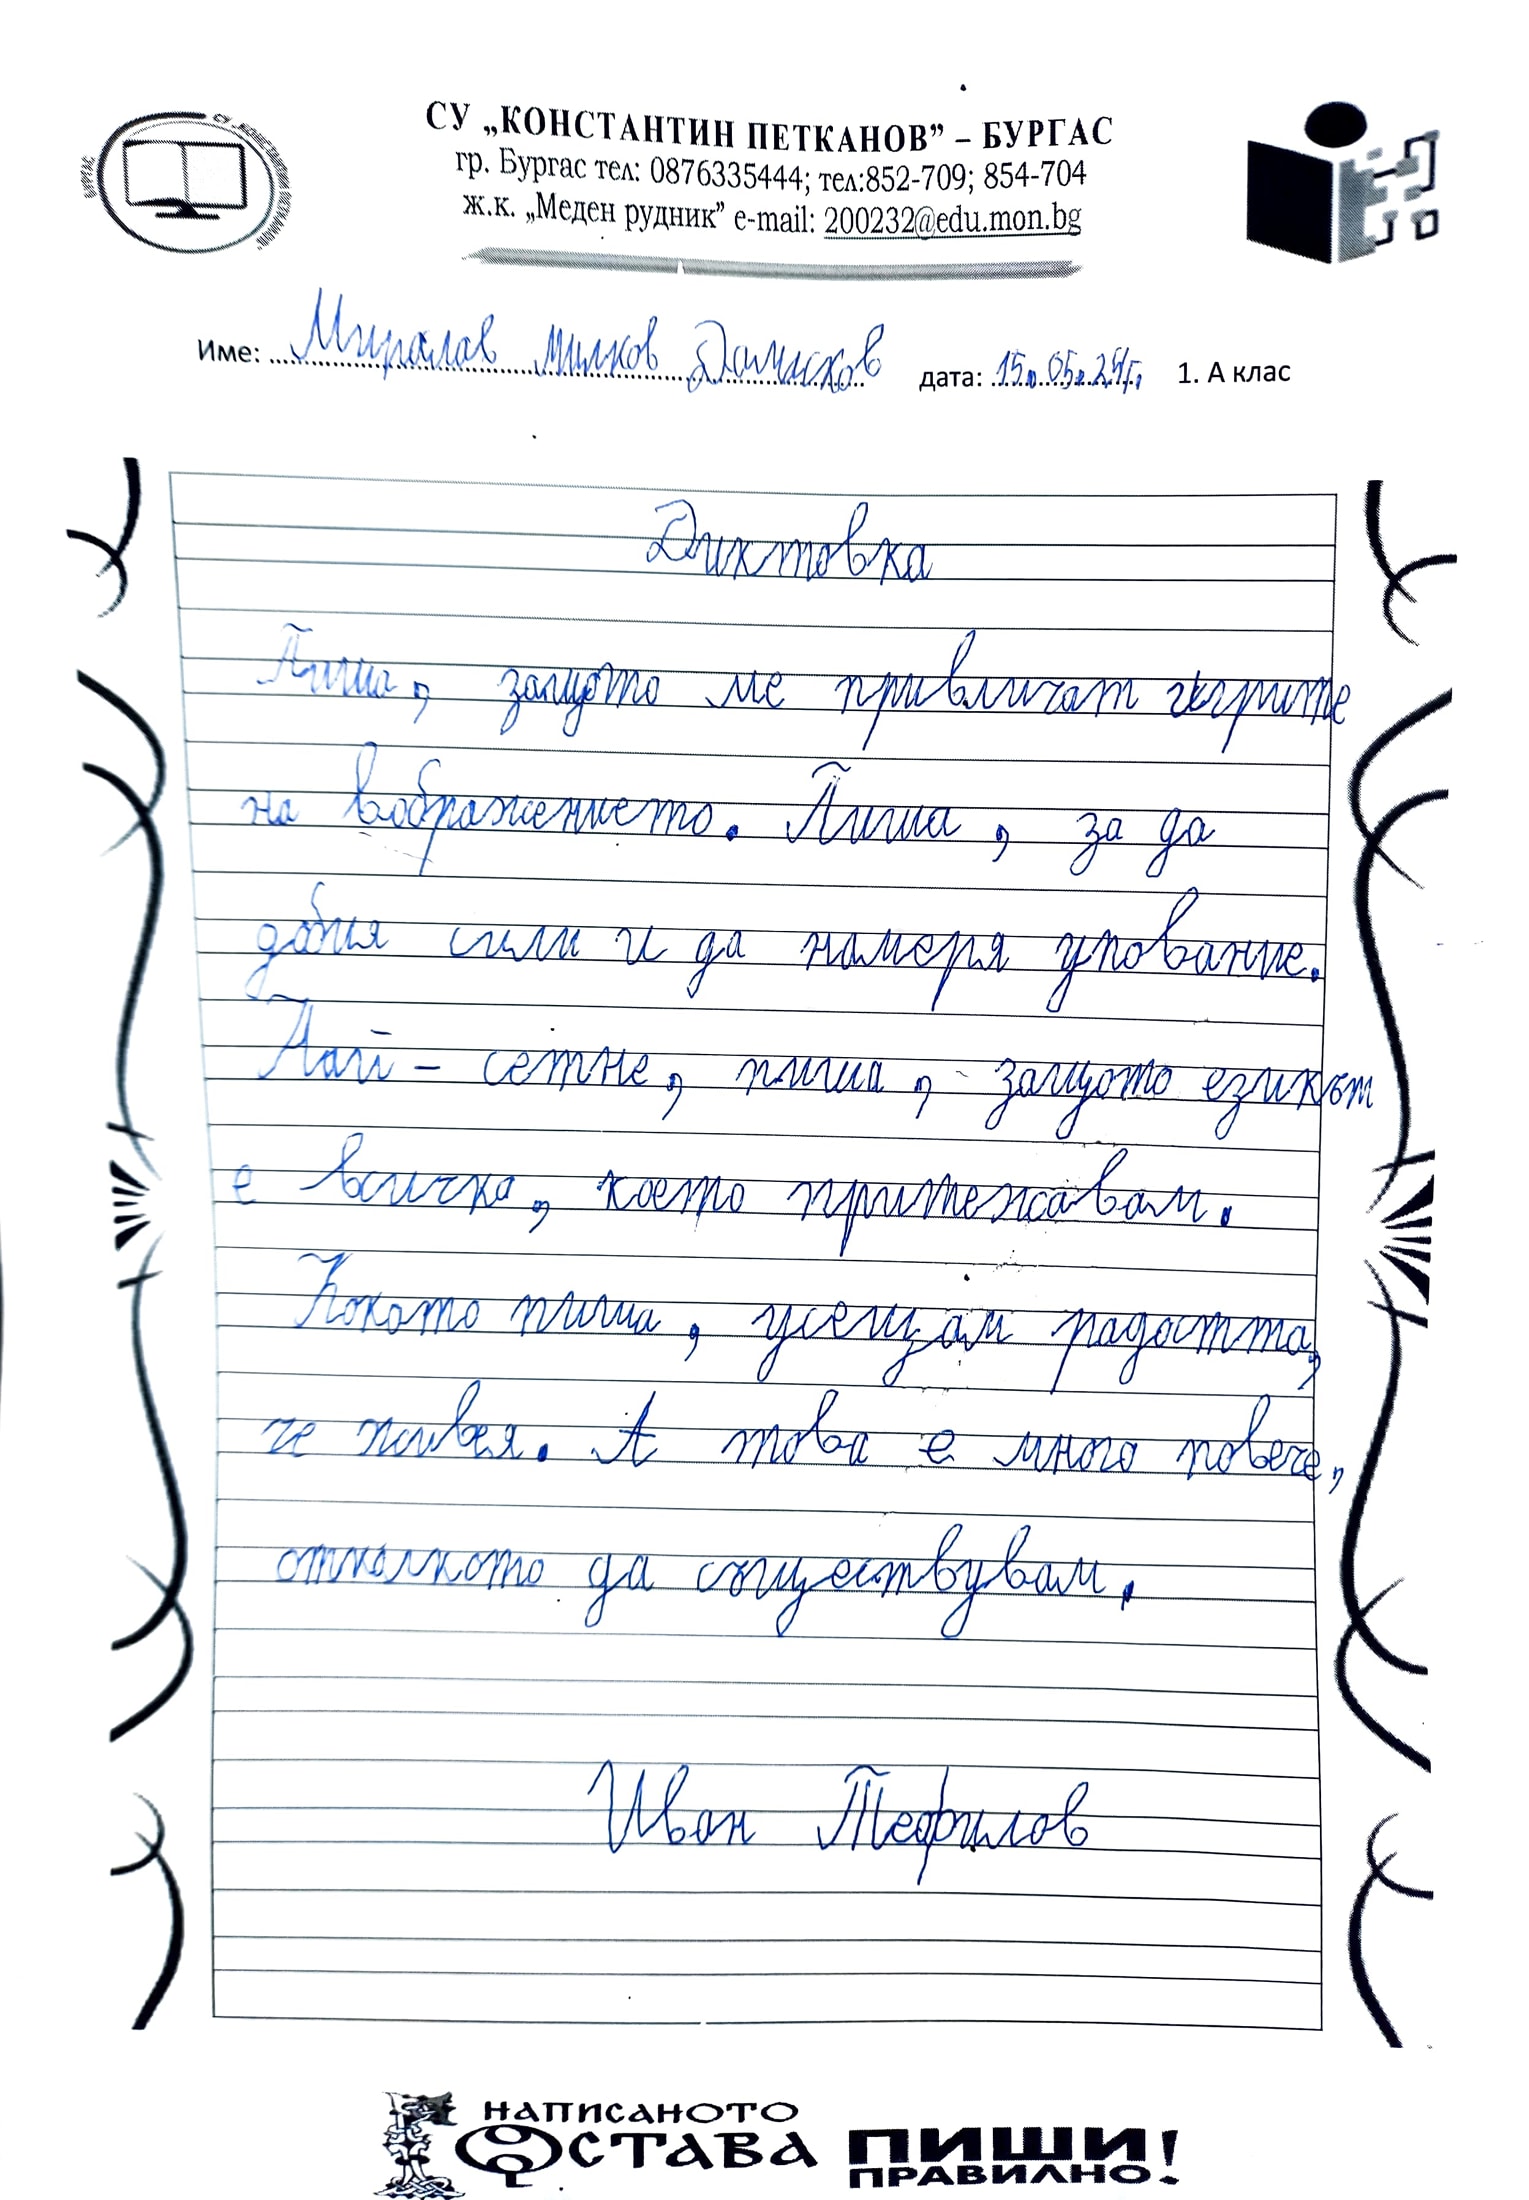 СУ „КОНСТАНТИН ПЕТКАНОВ” – БУРГАС
гр. Бургас тел: 0876335444; тел:852-709; 854-704
ж.к. „Меден рудник” e-mail: 200232@edu.mon.bg
Име: Миралав милков дата: 15.05.25г. 1. А клас
Диктовка
Пиша, защото ме привличат
на въображението. Пиша, за да
добия сили и да намеря упование.
Най - сетне, пиша, защото езикът
е всичко, което притежавам.
Когато пиша, усещам радостта,
че живея. А това е много повече,
отколкото да съществувам.
Иван Теофилов
НАПИСАНОТО
ОСТАВА ПИШИ
ПРАВИЛНО!